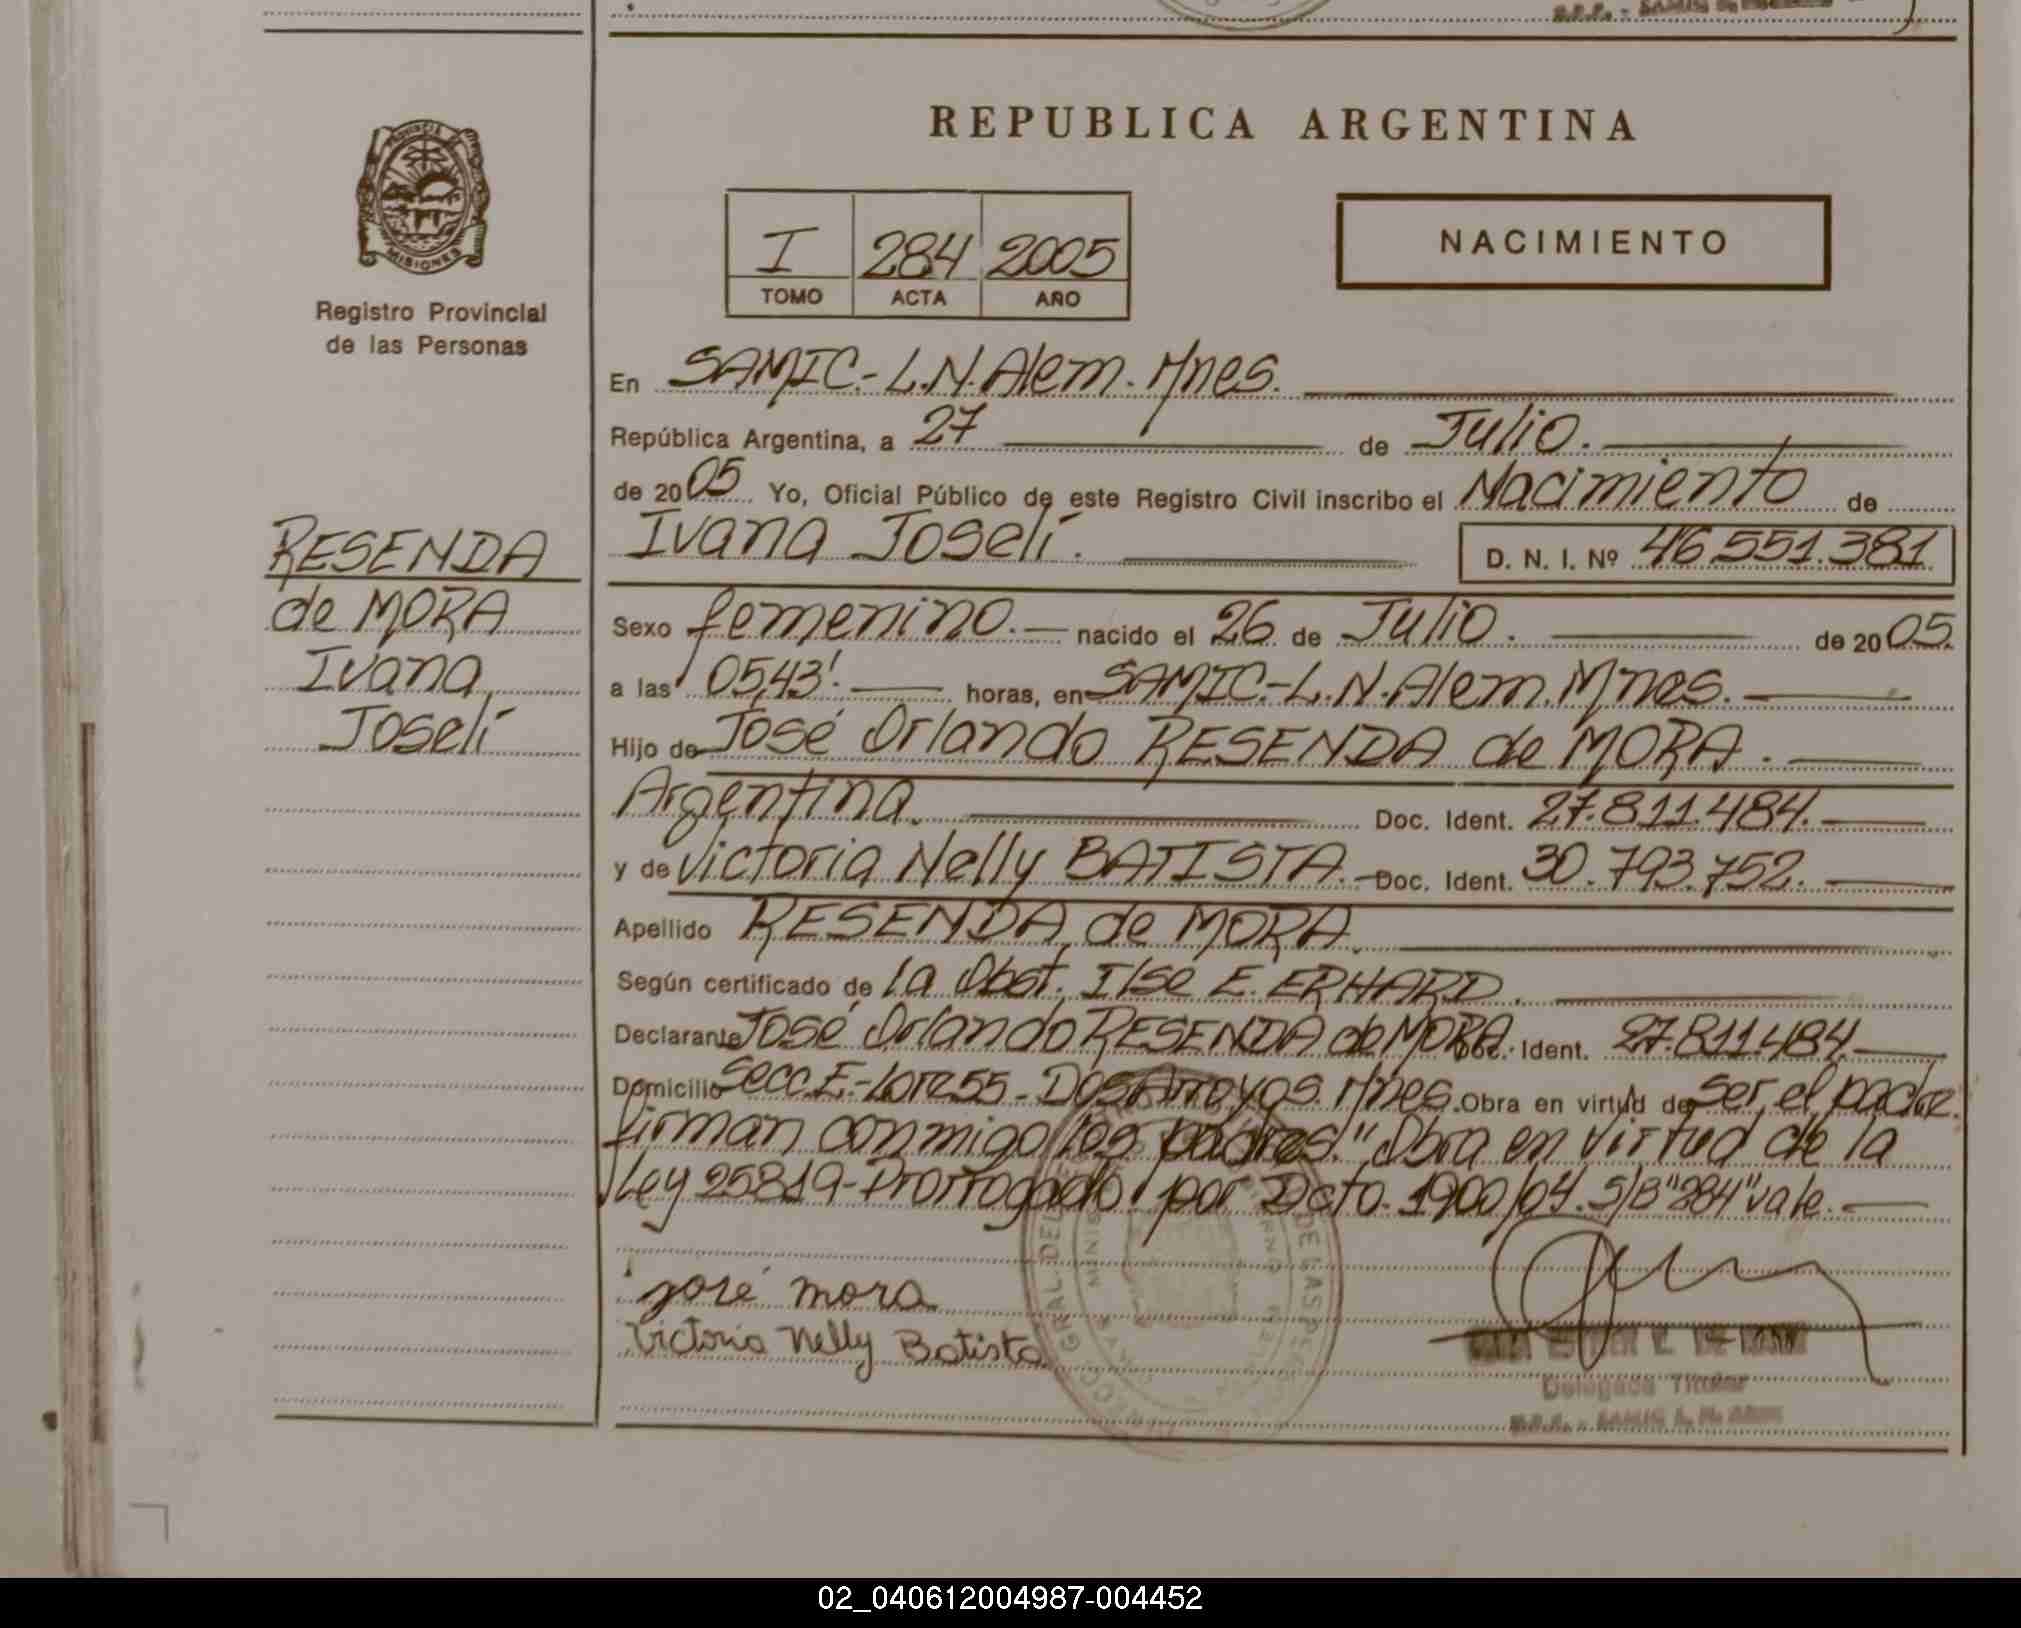 REPUBLICA ARGENTINA
PROVINCIA DE
MISIONES
Registro Provincial
de las Personas
I 284 2005
TOMO ACTA AÑO
NACIMIENTO
RESENDA
de MORA
Ivana
Joselí
En SAMIC.-L.N.Alem.Mnes.
República Argentina, a 27 de Julio.
de 2005 Yo, Oficial Público de este Registro Civil inscribo el Nacimiento de
Ivana Joselí. D. N. I. Nº 46.551.381
Sexo femenino.- nacido el 26 de Julio. de 2005.
a las 05,43'. horas, en SAMIC.-L.N.Alem.Mnes.
Hijo de José Orlando RESENDA de MORA.
Argentina. Doc. Ident. 27.811.484.
y de Victoria Nelly BATISTA.- Doc. Ident. 30.793.752.
Apellido RESENDA de MORA.
Según certificado de la Obst. Ilse E. ERHARD.
Declarante José Orlando RESENDA de MORA Doc. Ident. 27.811.484.
Domicilio Secc.E.-Lote55-DosArroyos.Mnes. Obra en virtud de ser el padre.
firman conmigo los padres." Obra en virtud de la
Ley 25819-Prorrogado por Dcto. 1900/04. S/B "284" vale.
josé mora
Victoria Nelly Batista
Delegada Titular
R.P.P. - SAMIC L. N. ALEM
02_040612004987-004452